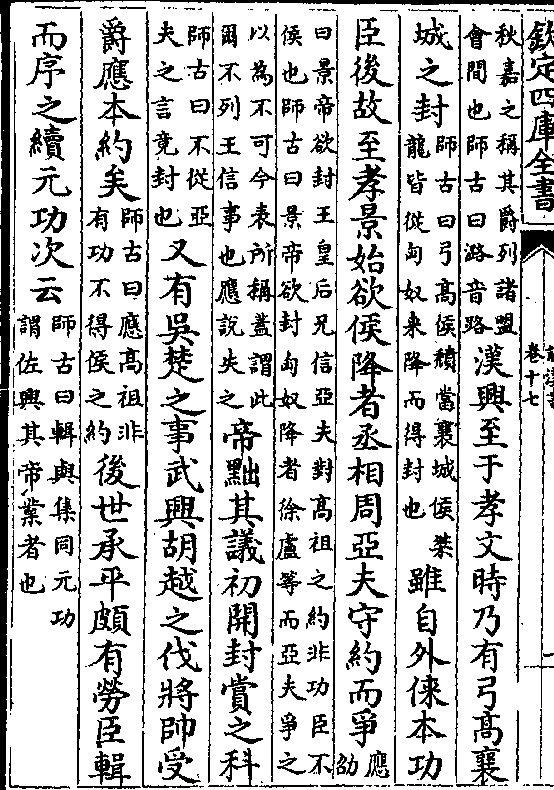 欽定四庫全書
卷十七
秋嘉之稱其爵列諸盟
會間也師古曰潞音路
漢興至于孝文時乃有弓高襄
城之封
師古曰弓高侯穨當襄城侯桀
龍皆從匈奴來降而得封也
雖自外倈本功
臣後故至孝景始欲侯降者丞相周亞夫守約而爭
應
劭
曰景帝欲封王皇后兄信亞夫對高祖之約非功臣不
侯也師古曰景帝欲封匈奴降者徐盧等而亞夫爭之
以為不可今表所稱蓋謂此
爾不列王信事也應說失之
帝黜其議初開封賞之科
師古曰不從亞
夫之言竟封也
又有吳楚之事武興胡越之伐將帥受
爵應本約矣
師古曰應高祖非
有功不得侯之約
後世承平頗有勞臣輯
而序之續元功次云
師古曰輯與集同元功
謂佐興其帝業者也